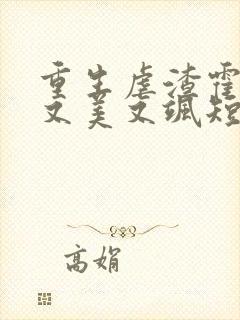 重生虐渣霍
又美又飒短
高娟